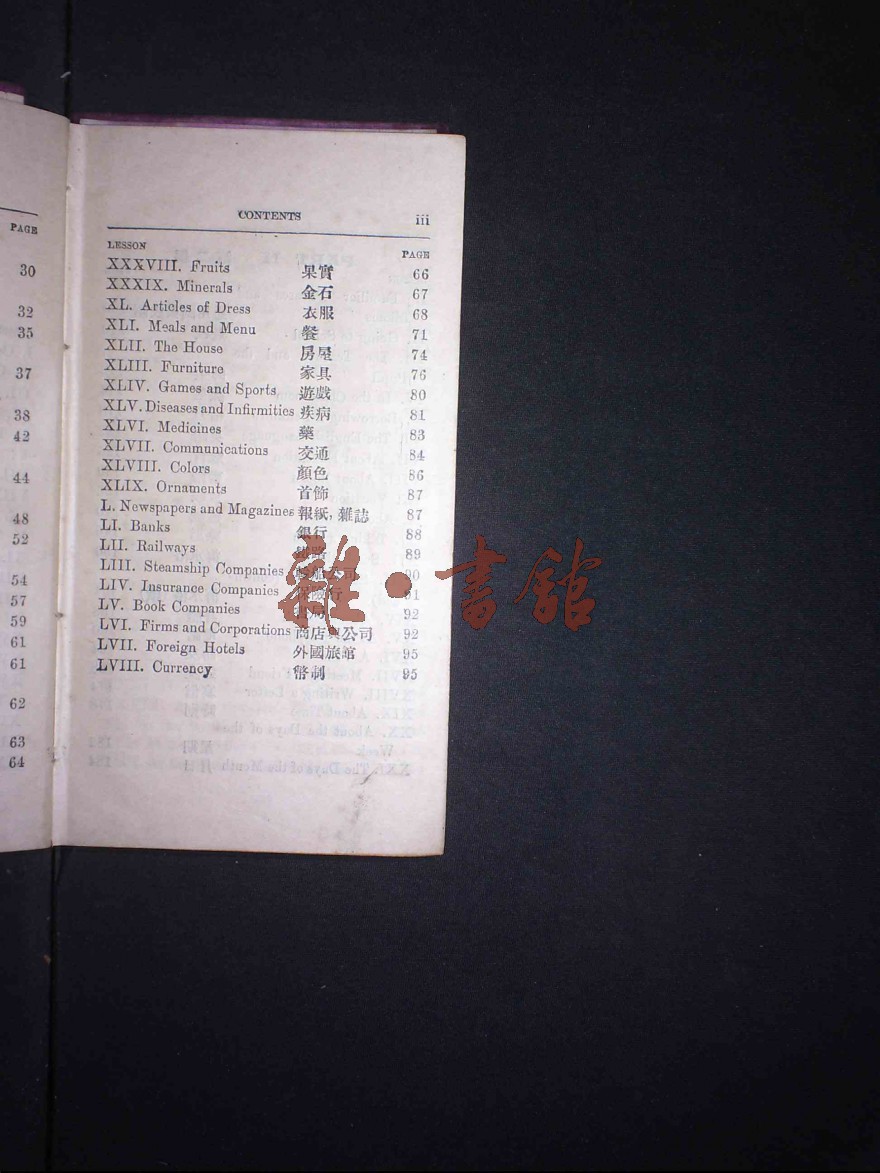 PAGE
30
32
35
37
38
42
44
48
52
54
57
59
61
61
62
63
64
CONTENTS iii
LESSON PAGE
XXXVIII. Fruits 果實 66
XXXIX. Minerals 金石 67
XL. Articles of Dress 衣服 68
XLI. Meals and Menu 餐 71
XLII. The House 房屋 74
XLIII. Furniture 家具 76
XLIV. Games and Sports 遊戲 80
XLV. Diseases and Infirmities 疾病 81
XLVI. Medicines 藥 83
XLVII. Communications 交通 84
XLVIII. Colors 顏色 86
XLIX. Ornaments 首飾 87
L. Newspapers and Magazines 報紙, 雜誌 87
LI. Banks 銀行 88
LII. Railways 鐵路 89
LIII. Steamship Companies 公司 90
LIV. Insurance Companies 保險行 91
LV. Book Companies 書局 92
LVI. Firms and Corporations 商店與公司 92
LVII. Foreign Hotels 外國旅館 95
LVIII. Currency 幣制 95
雜·書館